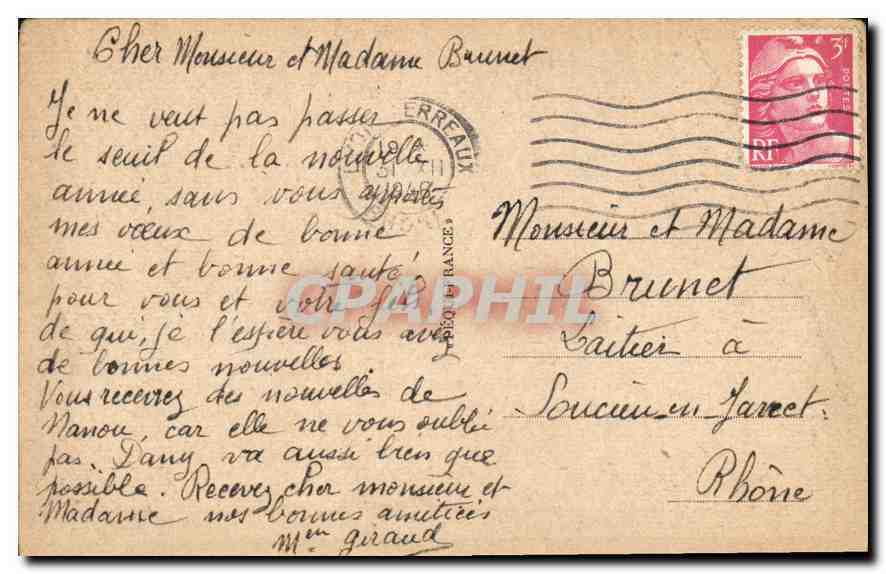 Cher Monsieur et Madame Brunet
Je ne veut pas passer
le seuil de la nouvelle
année, sans vous apportés
mes vœux de bonne
année et bonne santé,
pour vous et votre fils
de qui, je l'espère vous avez
de bonnes nouvelles
Vous recevrez des nouvelles de
Nanou, car elle ne vous oublié
pas. Dany va aussi bien que
possible. Recevez cher monsieur et
Madame nos bonnes amitiées
Men giraud
ERREAUX
31 XII
1948
3F
POSTES
RF
"PEQUI-FRANCE"
Monsieur et Madame
Brunet
Laitier à
Soucieu-en-Jarret
Rhône
CPAPHIL